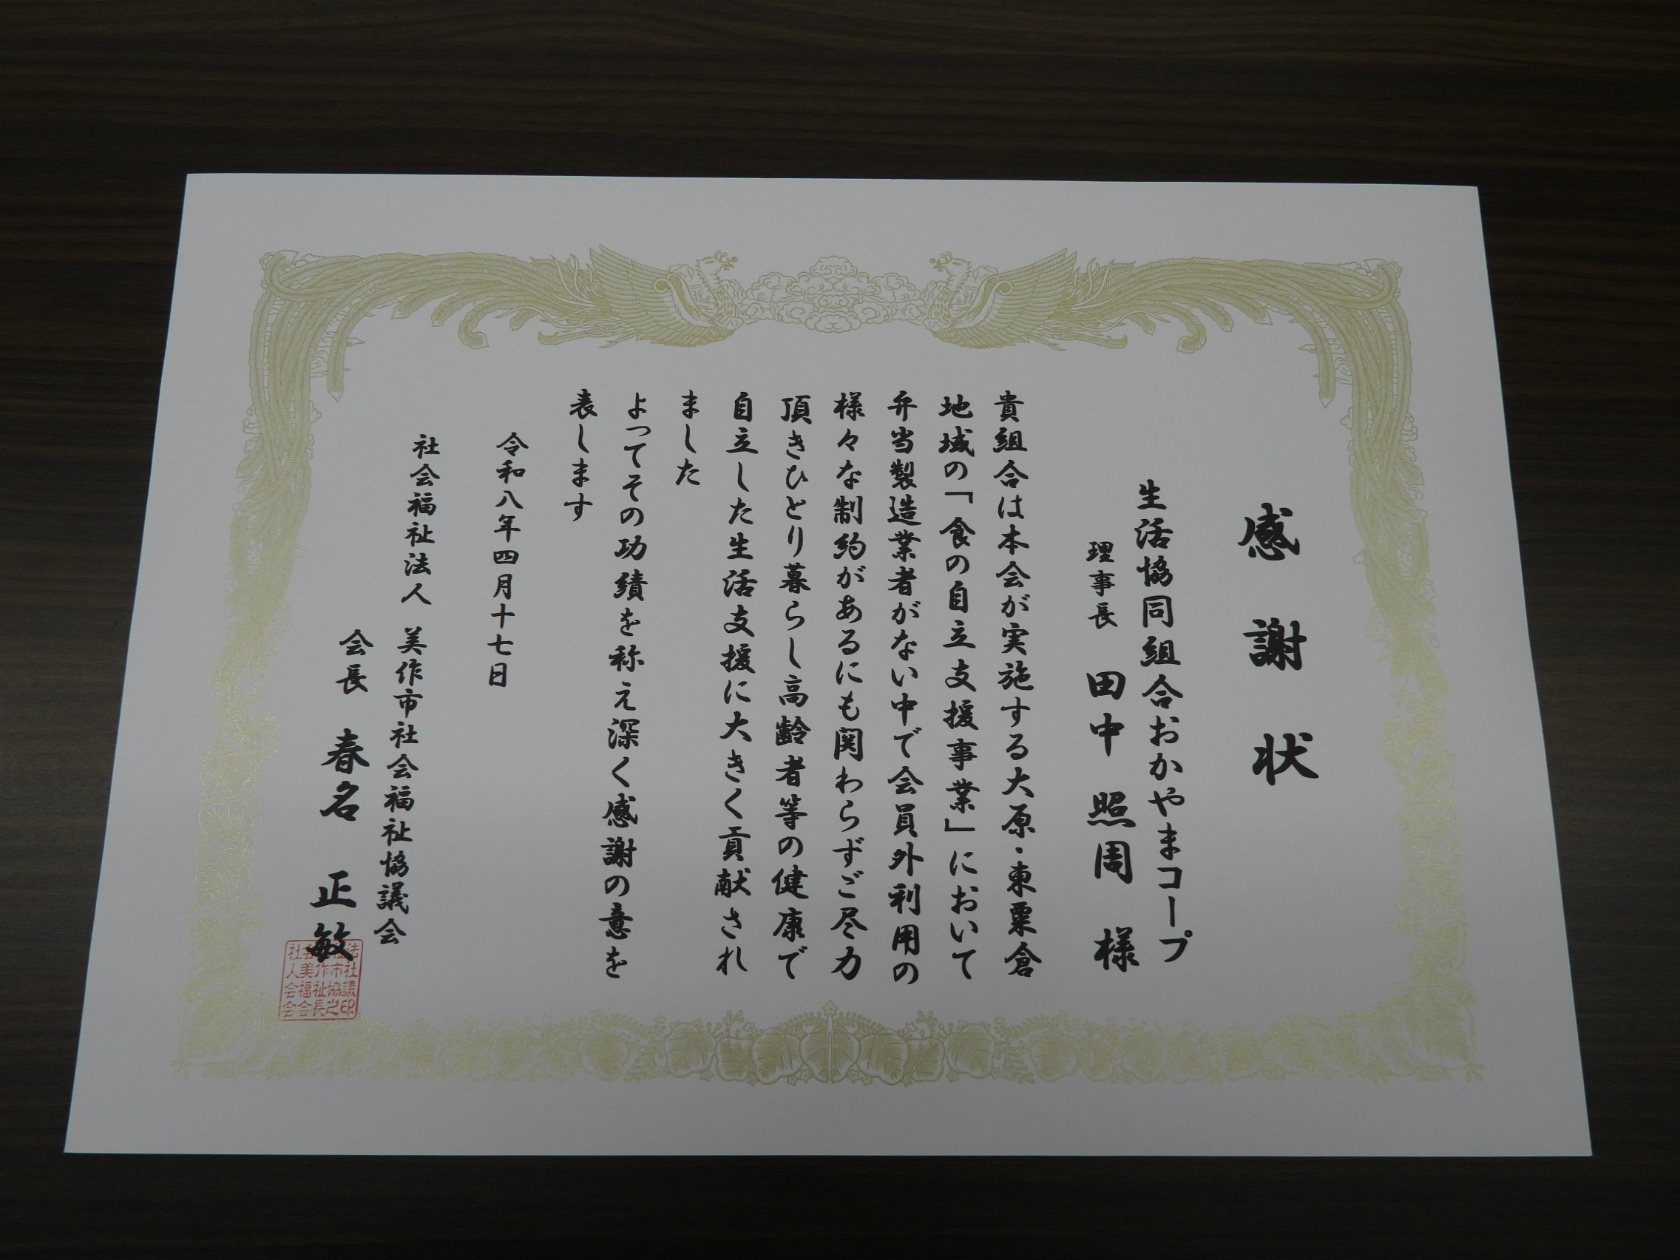 感謝状
生活協同組合おかやまコープ
理事長 田中 照周 様
貴組合は本会が実施する大原・東粟倉
地域の「食の自立支援事業」において
弁当製造業者がない中で会員外利用の
様々な制約があるにも関わらずご尽力
頂きひとり暮らし高齢者等の健康で
自立した生活支援に大きく貢献され
ました
よってその功績を称え深く感謝の意を
表します
令和八年四月十七日
社会福祉法人 美作市社会福祉協議会
会長 春名 正敏